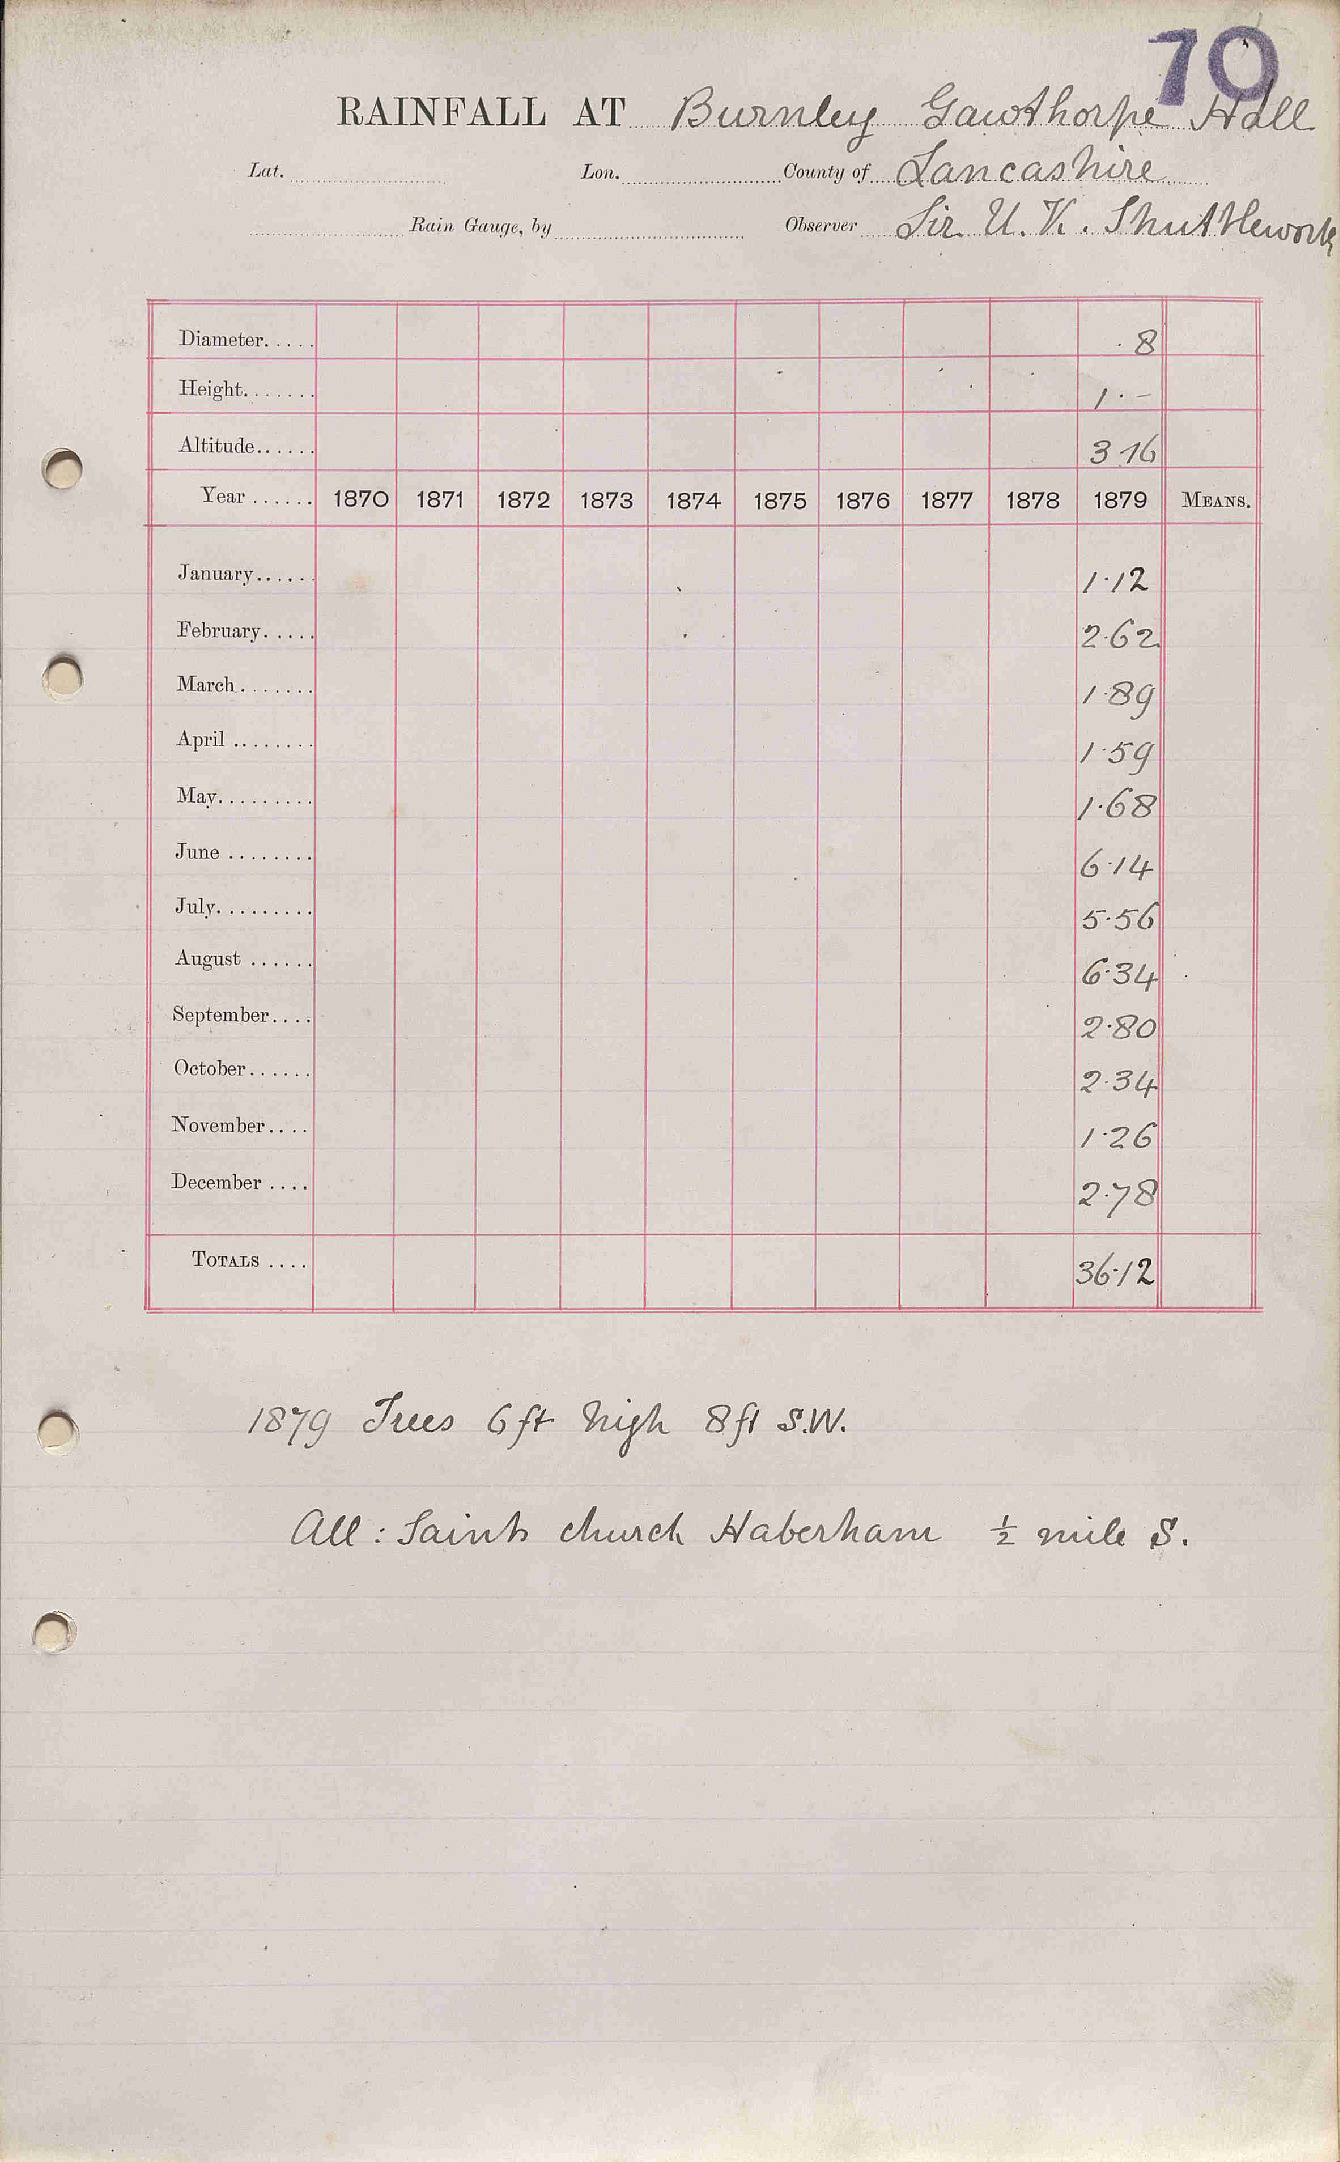 70
RAINFALL AT Burnley Gawthorpe Hall
Lat. Lon. County of Lancashire
Rain Gauge, by Observer Sir U. K. Shuttleworth
Diameter..... 8
Height....... 1·–
Altitude...... 316
Year ...... 1870 1871 1872 1873 1874 1875 1876 1877 1878 1879 MEANS.
January...... 1·12
February..... 2·62
March....... 1·89
April ........ 1·59
May......... 1·68
June ........ 6·14
July......... 5·56
August ...... 6·34
September.... 2·80
October...... 2·34
November.... 1·26
December .... 2·78
TOTALS .... 36·12
1879 Trees 6ft high 8ft S.W.
All: Saints church Haberham ½ mile S.